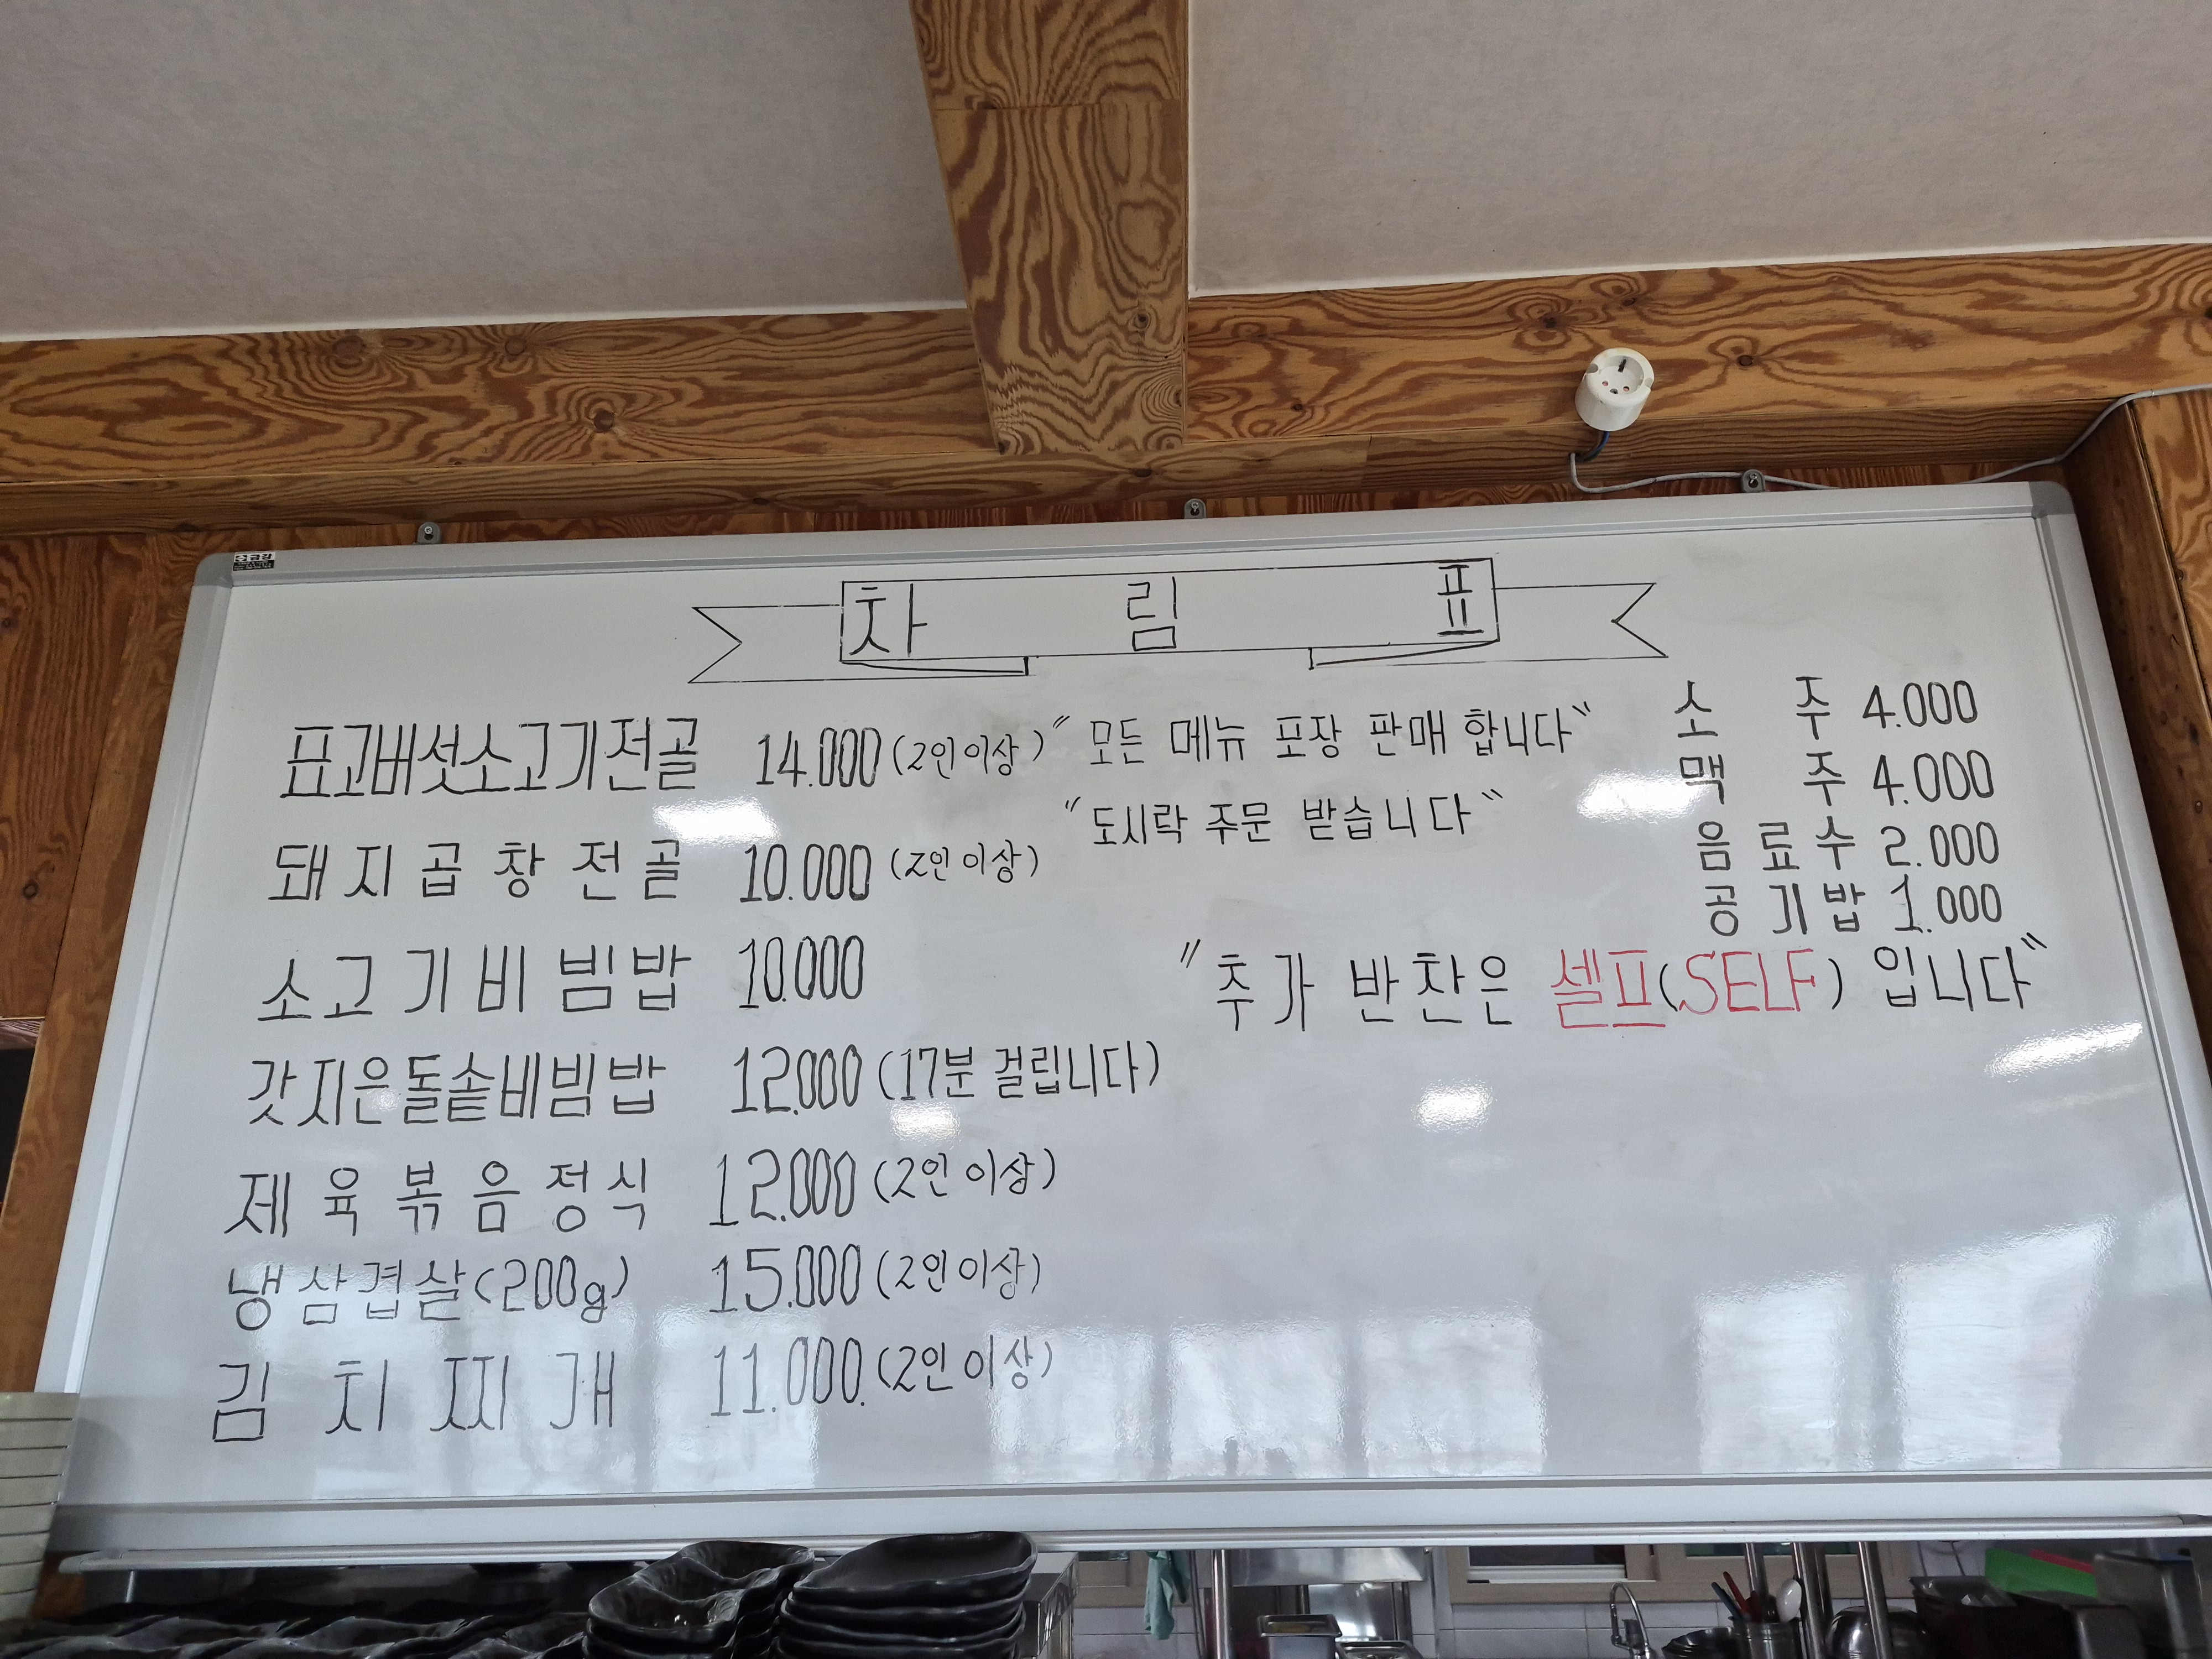 차림표
표고버섯소고기전골 14.000 (2인 이상)
돼지곱창전골 10.000 (2인 이상)
소고기비빔밥 10.000
갓지은돌솥비빔밥 12.000 (17분 걸립니다)
제육볶음정식 12.000 (2인 이상)
냉삼겹살(200g) 15.000 (2인 이상)
김치찌개 11.000. (2인 이상)
"모든 메뉴 포장 판매 합니다"
"도시락 주문 받습니다"
소주 4.000
맥주 4.000
음료수 2.000
공기밥 1.000
"추가 반찬은 셀프(SELF) 입니다"